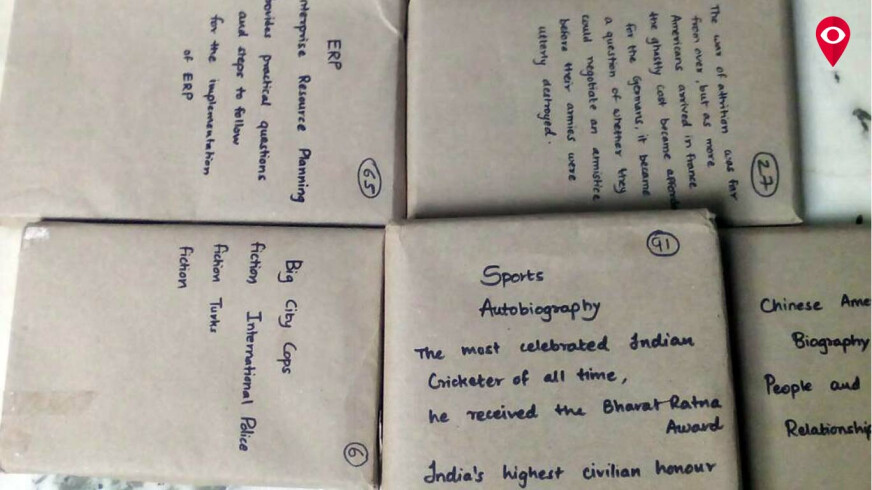 ERP
nterprise Resource Planning
rovides practical questions
and steps to follow
for the implementation
of ERP
65
The war of attrition was far
from over, but as more
Americans arrived in France
the ghastly cost became
for the Germans, it became
a question of whether they
could negotiate an armistice
before their armies were
utterly destroyed.
27
Big City Cops
fiction International Police
fiction Turks
fiction
6
91
Sports
Autobiography
The most celebrated Indian
Cricketer of all time,
he received the Bharat Ratna
Award
India's highest civilian honour
Chinese Ame
Biography
People and
Relationship